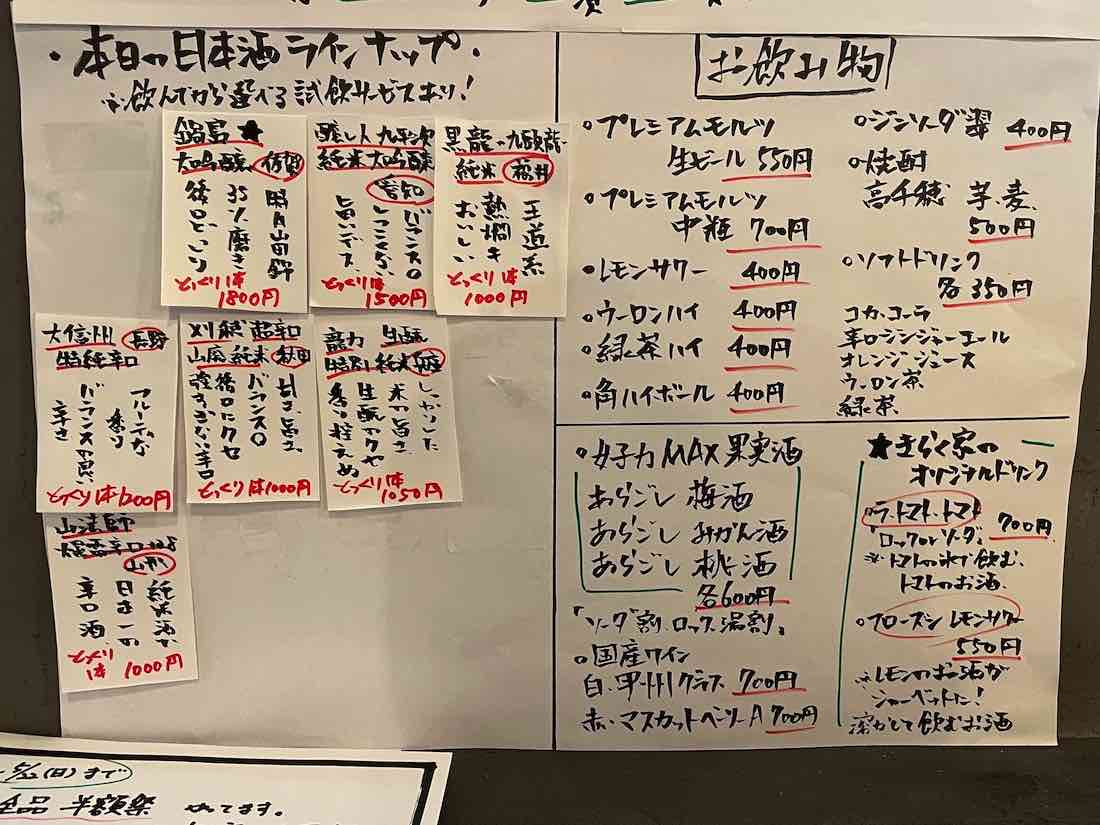 ・本日の日本酒ラインナップ・
※飲んでから選べる試飲サービスあり!
鍋島★
大吟醸 佐賀
特A山田錦
35%磨き
後口どっしり
とっくり1本
1800円
醸し人九平次
純米大吟醸
愛知
バランス○
しつこくない
旨いデス。
とっくり1本
1500円
黒龍の九頭龍
純米 福井
王道系
熱燗キ
おいしい
とっくり1本
1000円
大信州 長野
特純辛口
フルーティな
香り
バランスの良い
辛さ
とっくり1本1200円
刈穂 超辛口
山廃純米 秋田
甘さ、旨さ、
バランス○
後口にクセ
強すぎない辛口
とっくり1本1000円
龍力 生酛
特別純米 兵庫
しっかりした
米の旨さ、
生酛のクセ
香り控えめ
とっくり1本
1050円
山法師
爆雷辛口+28
山形
純米酒で
日本一の
辛口酒。
とっくり
1本 1000円
お飲み物
○プレミアムモルツ
生ビール 550円
○プレミアムモルツ
中瓶 700円
○レモンサワー 400円
○ウーロンハイ 400円
○緑茶ハイ 400円
○角ハイボール 400円
○ジンソーダ翠 400円
○焼酎
高千穂 芋、麦、
500円
○ソフトドリンク
各350円
コカ・コーラ
辛口ジンジャーエール
オレンジジュース
ウーロン茶
緑茶
○女子力MAX果実酒
あらごし 梅酒
あらごし みかん酒
あらごし 桃酒
各600円
「ソーダ割、ロック、湯割」
○国産ワイン
白、甲州グラス 700円
赤、マスカットベーリーA 700円
★きらく家の
オリジナルドリンク
○ラ・トマト・トマト
「ロックorソーダ」 700円
※トマトの水で飲む、
トマトのお酒
○フローズンレモンサワー
550円
※レモンのお酒が
シャーベットに!
溶かして飲むお酒
5/22(日)まで
全品 半額祭 やってます。